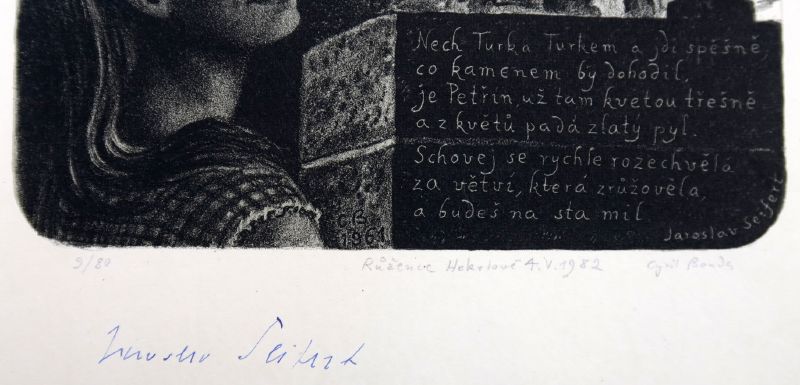 Nech Turka Turkem a jdi spěšně,
co kamenem by dohodil,
je Petřín, už tam kvetou třešně
a z květů padá zlatý pyl.
Schovej se rychle rozechvělá
za větví, která zrůžověla,
a budeš na sta mil
Jaroslav Seifert
C B
1961
9/80
Růžence Hekrlové 4.V.1982
Cyril Bouda
Jaroslav Seifert